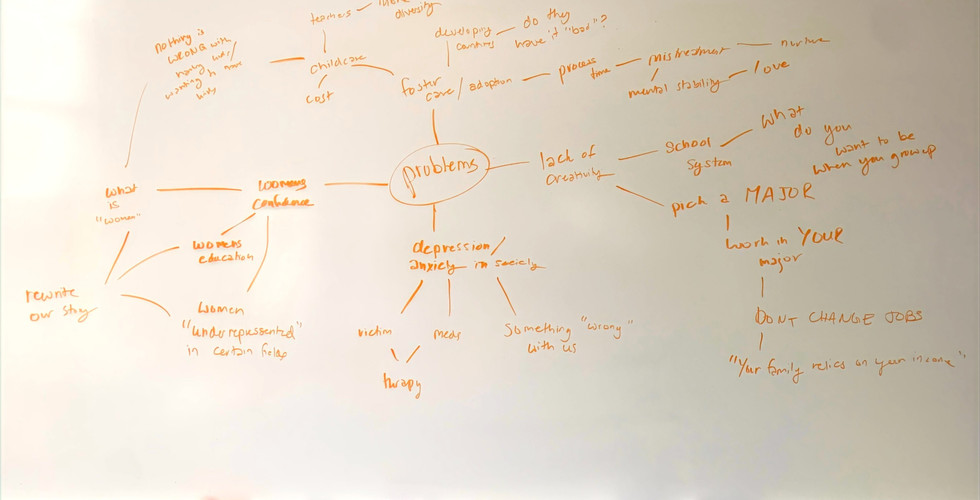 teachers
diversity
developing
countries
do they
have it "bad"?
nothing is
WRONG with
wanting to
childcare
cost
foster
care/
adoption
process
time
mistreatment
nurture
mental stability
love
problems
lack of
creativity
school
system
what
do you
want to be
when you grow up
pick a MAJOR
work in YOUR
major
DONT CHANGE JOBS
"Your family relies on your income"
what
is
"women"
womens
confidence
womens
education
women
"underrepresented"
in certain fields
rewrite
our story
depression/
anxiety in society
victim
meds
therapy
something "wrong"
with us